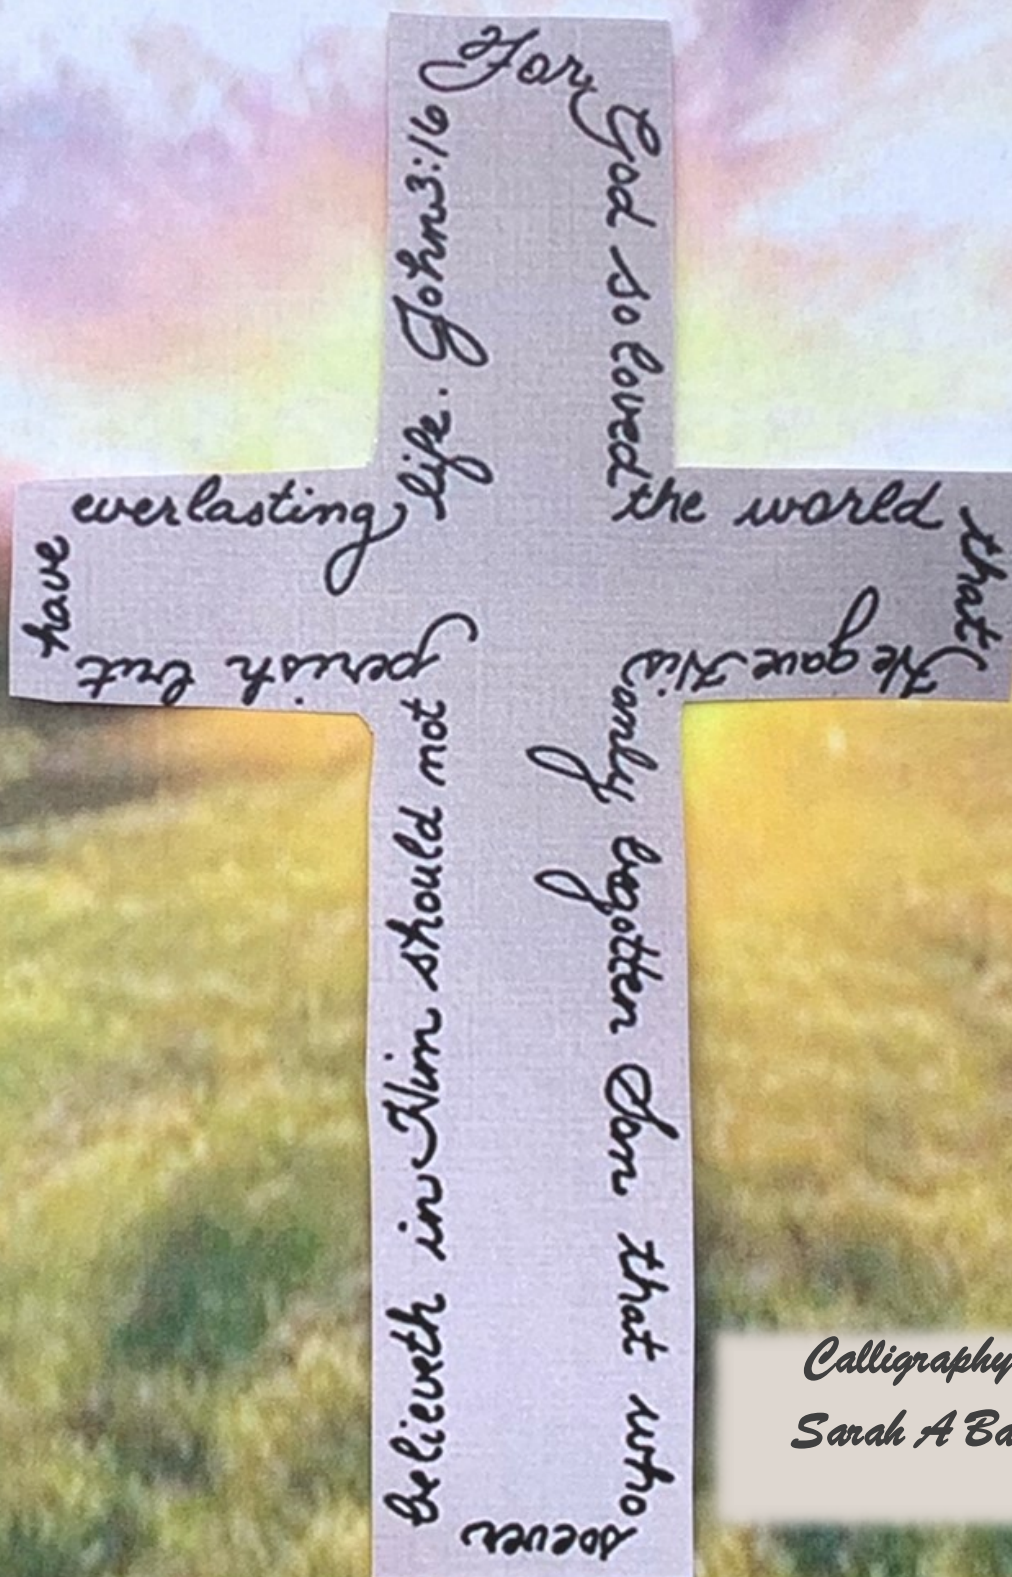 For
God so loved
the world
that
He gave His
only begotten Son that who
soever
believeth in Him should not
perish but
have
everlasting
life. John 3:16
Calligraphy
Sarah A